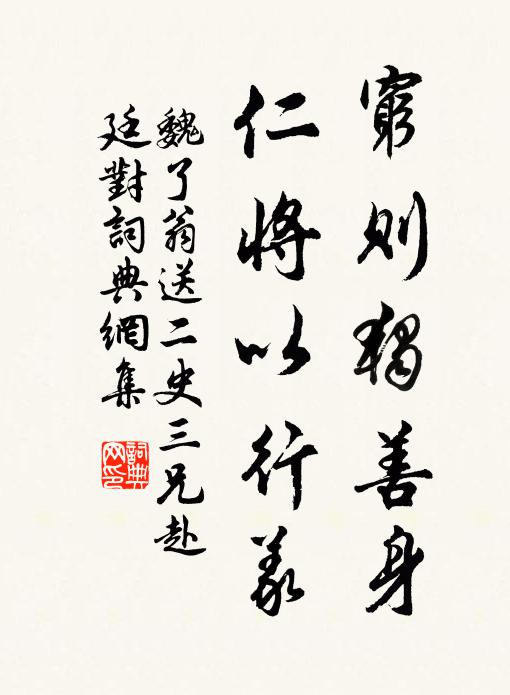 窮則獨善身
仁將以行義
魏了翁送二史三兄赴
廷對詞典網集
詞典
网印